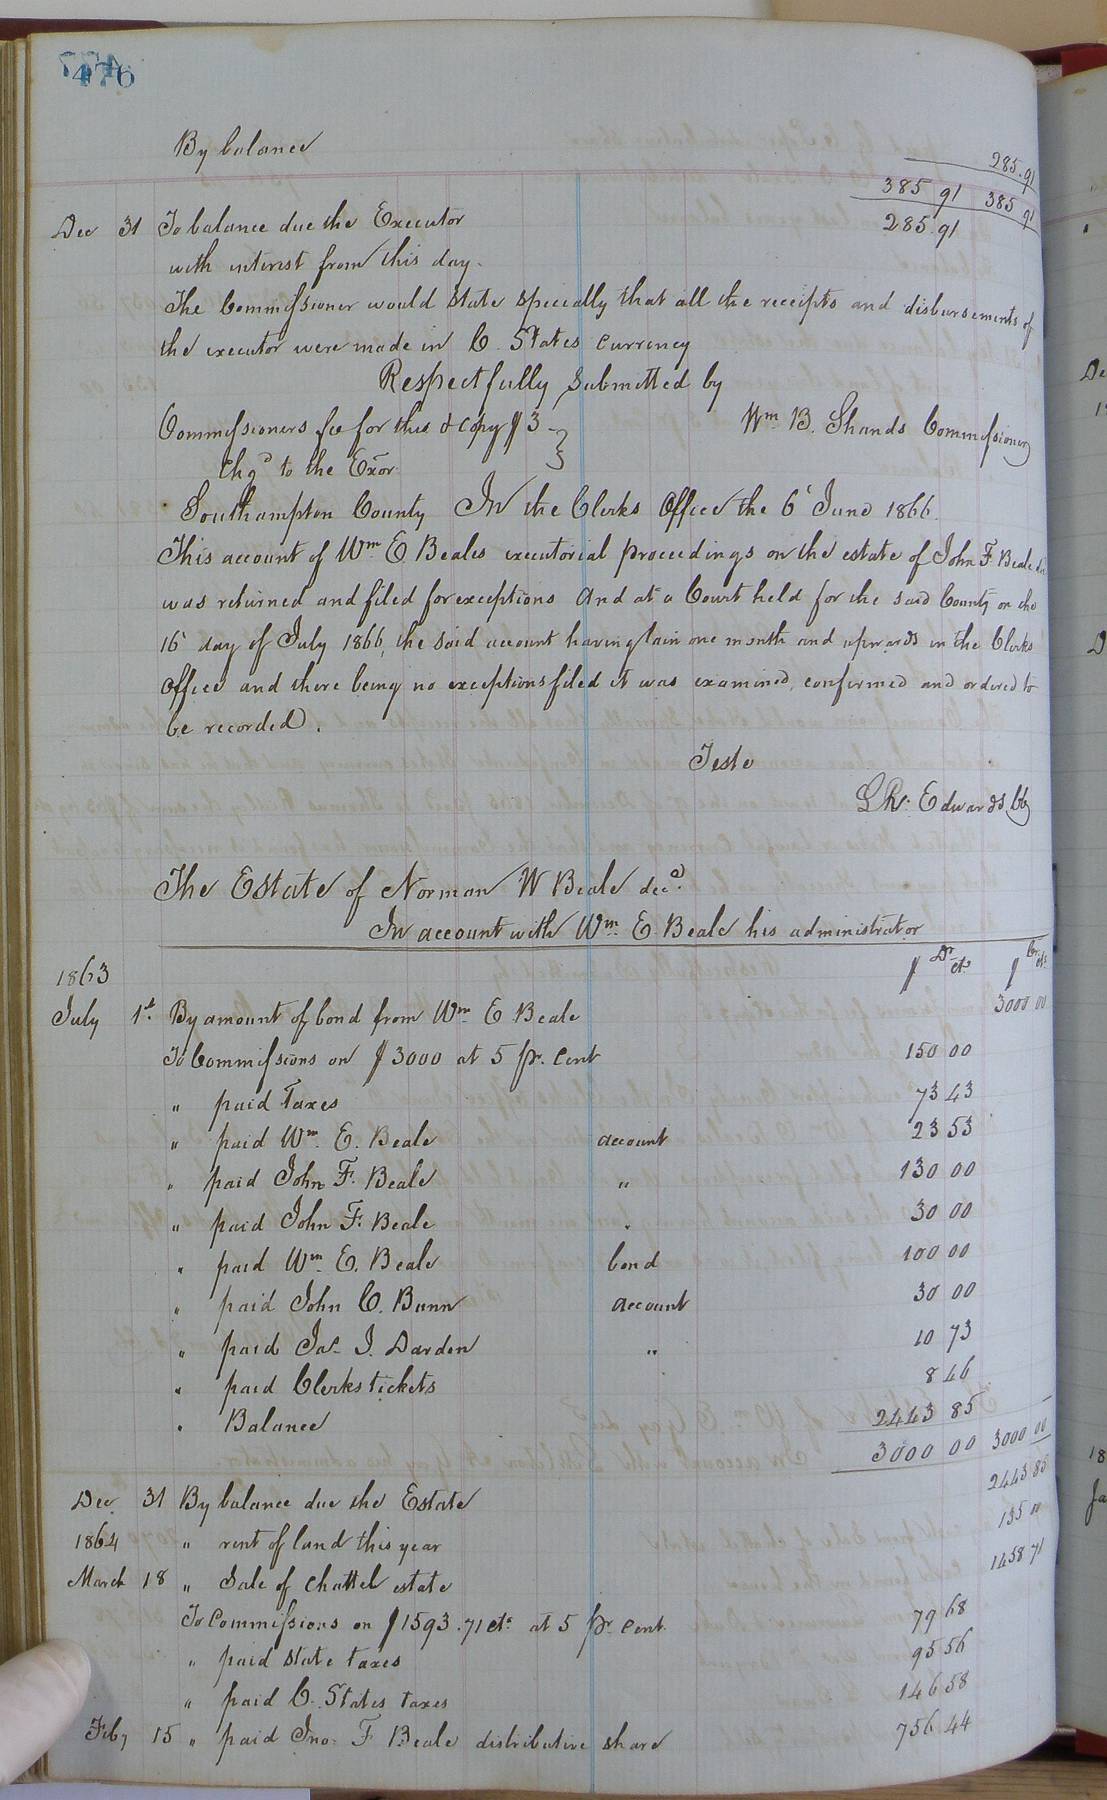 476
By balance 285.91
385 91 385 91
Dec 31 To balance due the Executor 285.91
with interest from this day.
The Commissioner would state specially that all the receipts and disbursements of
the executor were made in C. States Currency
Respectfully Submitted by
Commissioners fee for this & copy $3 Wm. B. Shands Commissioner
Chgd to the Exor.
Southampton County In the Clerks Office the 6' June 1866.
This account of Wm E Beales executorial proceedings on the estate of John F. Beale dec
was returned and filed for exceptions And at a Court held for the said County on the
16 day of July 1866, the said account having lain one month and upwards in the Clerks
Office and there being no exceptions filed it was examined, confirmed and ordered to
be recorded.
Teste
L. R. Edwards Clk
The Estate of Norman W Beale decd.
In account with Wm. E. Beale his administrator
1863 $ Dr cts $ Cr cts
July 1st. By amount of bond from Wm E Beale 3000 00
To Commissions on $3000 at 5 pr. cent 150 00
" paid Taxes 73 43
" paid Wm. E. Beale account 23 53
" paid John F. Beale " 130 00
" paid John F. Beale " 30 00
" paid Wm. E. Beale bond 100 00
" paid John C. Bunn account 30 00
" paid Jas. J. Darden " 10 73
" paid Clerks tickets 8 46
" Balance 2443 85
3000 00 3000 00
Dec 31 By balance due the Estate 2443 85
1864 " rent of land this year 135 00
March 18 " Sale of Chattel estate 1458 71
To Commissions on $1593.71 cts at 5 pr. cent. 79 68
" paid state taxes 95 56
" paid C. States taxes 146 58
Feby 15 " paid Jno. F Beale distributive share 756 44